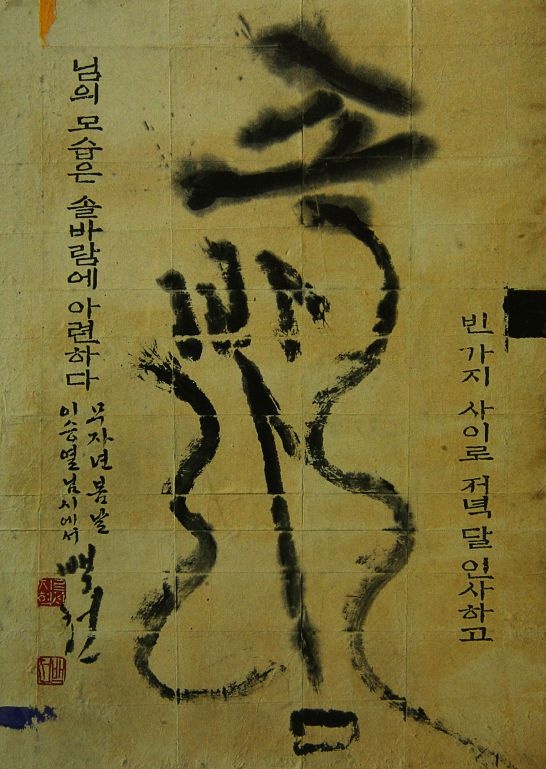 솔바람
빈 가지 사이로 저녁 달 인사하고
님의 모습은 솔바람에 아련하다
무자년 봄날
이승열님시에서